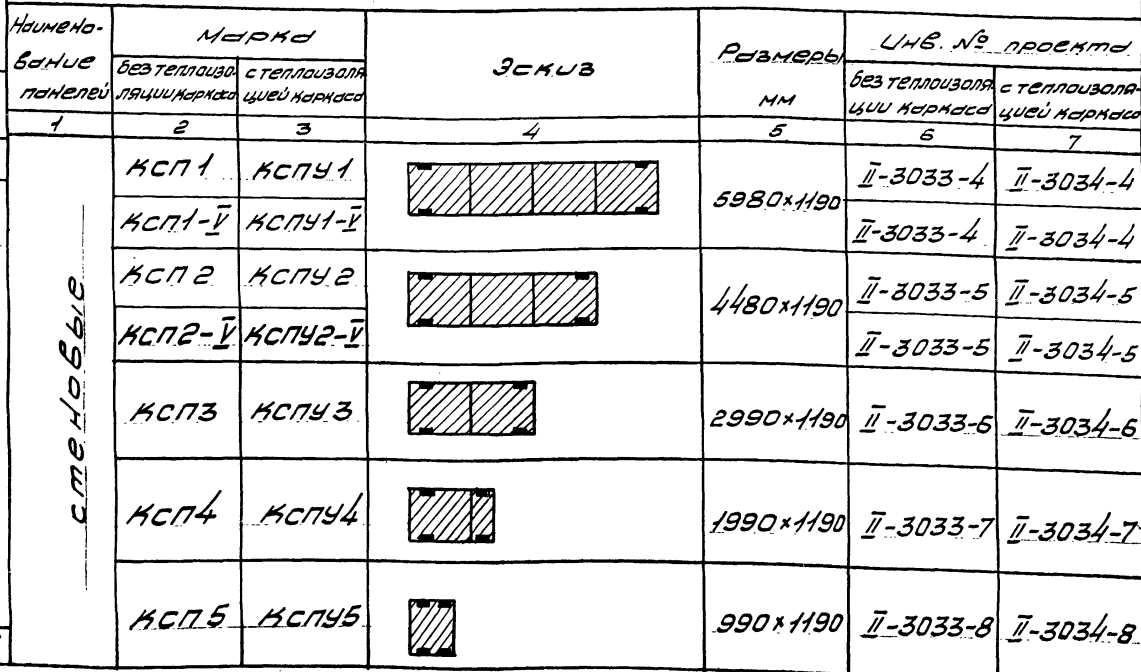 Наименование панелей
Марка
Эскиз
Размеры мм
Инв. № проекта
без теплоизоляции каркаса
с теплоизоляцией каркаса
без теплоизоляции каркаса
с теплоизоляцией каркаса
1 2 3 4 5 6 7
стеновые
КСП 1 КСПУ 1 5980×1190 II-3033-4 II-3034-4
КСП1-V КСПУ1-V II-3033-4 II-3034-4
КСП 2 КСПУ 2 4480×1190 II-3033-5 II-3034-5
КСП2-V КСПУ2-V II-3033-5 II-3034-5
КСП3 КСПУ 3 2990×1190 II-3033-6 II-3034-6
КСП4 КСПУ4 1990×1190 II-3033-7 II-3034-7
КСП 5 КСПУ5 990×1190 II-3033-8 II-3034-8